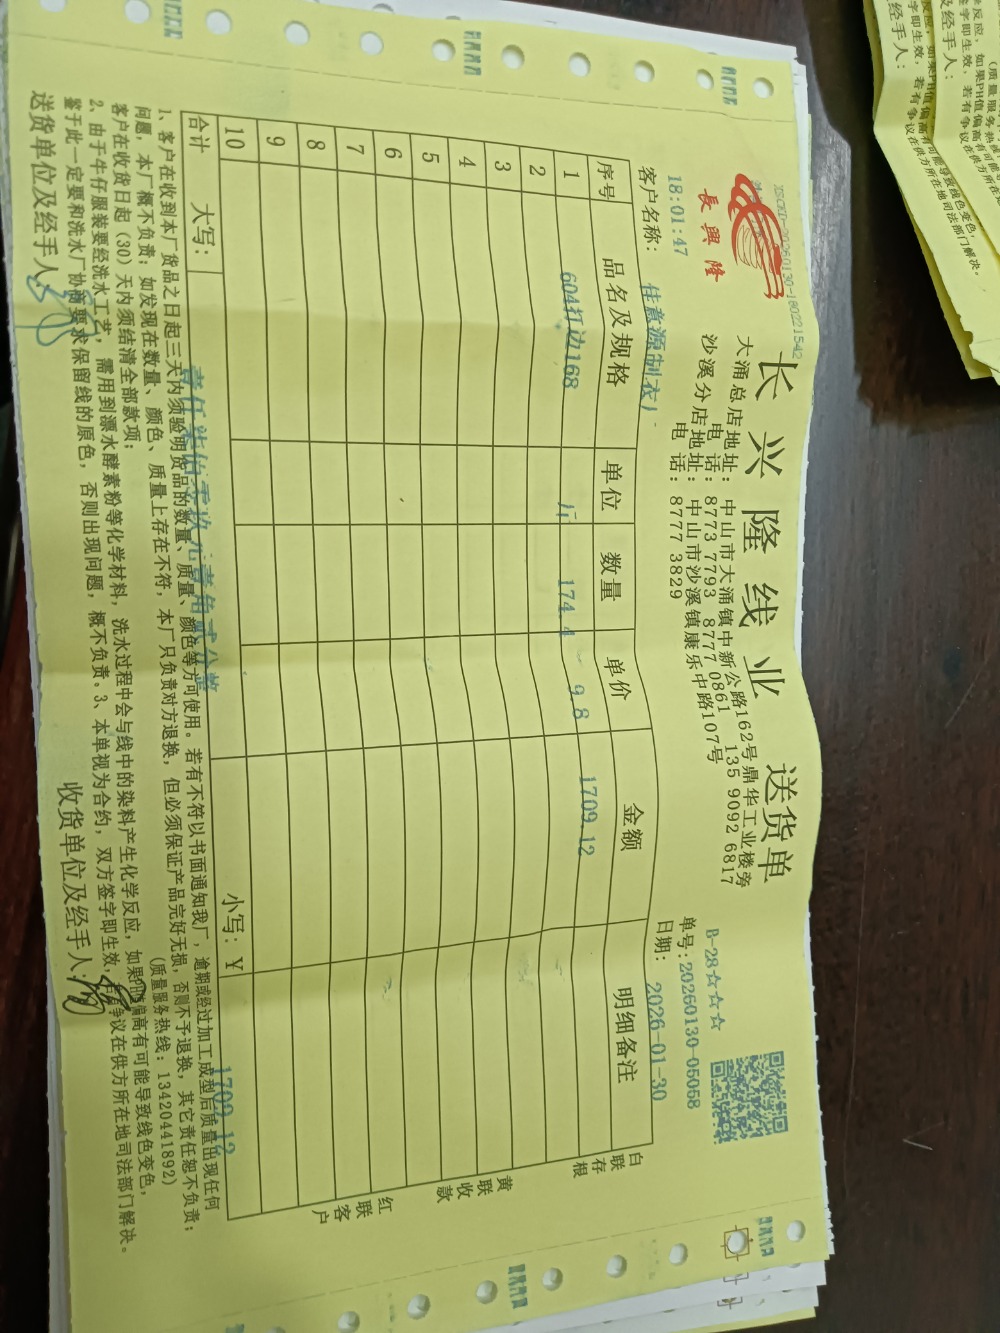 XSCKD-20260130-180221542
長興隆
长兴隆线业 送货单
大涌总店地址：中山市大涌镇中新公路162号鼎华工业楼旁
电 话：8773 7793 8777 0861 135 9092 6817
沙溪分店地址：中山市沙溪镇康乐中路107号
电 话：8777 3829
B-28☆☆☆
单号：20260130-05058
18:01:47
日期：2026-01-30
客户名称：佳意源制衣厂
序号 品名及规格 单位 数量 单价 金额 明细备注
1 604打边168 174.4 9.8 1709.12
2
3
4
5
6
7
8
9
10
合计 大写：壹仟柒佰零玖元壹角贰分整 小写：¥ 1709.12
白联存根
黄联收款
红联客户
1、客户在收到本厂货品之日起三天内须验明货品的数量、质量、颜色等方可使用。若有不符以书面通知我厂，逾期或经过加工成型后质量出现任何
问题，本厂概不负责；如发现在数量、颜色、质量上存在不符，本厂只负责对方退换，但必须保证产品完好无损，否则不予退换，其它责任恕不负责；
客户在收货日起（30）天内须结清全部款项；
（质量服务热线：13420441892）
2、由于牛仔服装要经洗水工艺，需用到漂水酵素粉等化学材料，洗水过程中会与线中的染料产生化学反应，如果PH值偏高有可能导致线色变色，
鉴于此一定要和洗水厂协商要求保留线的原色，否则出现问题，概不负责。3、本单视为合约，双方签字即生效，若有争议在供方所在地司法部门解决。
送货单位及经手人：
收货单位及经手人：
（质量服务热
反应，如果PH值偏高有可能导致线色变色，
字即生效，若有争议在供方所在地司法部门解决。
及经手人：
经手人：